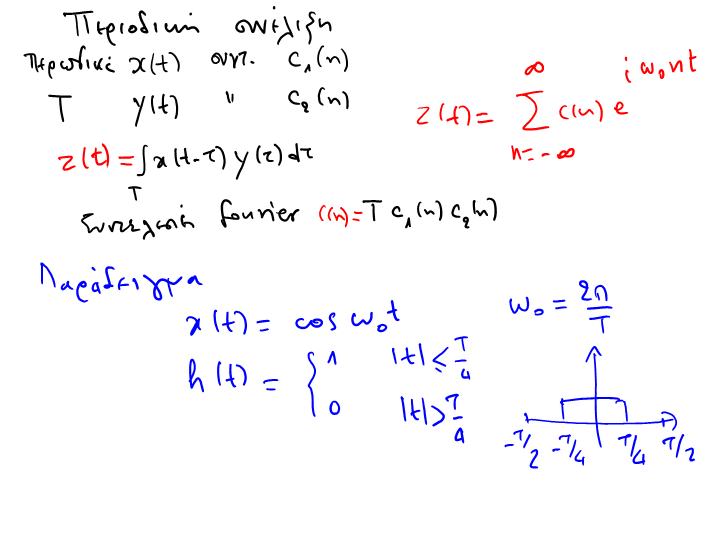 Περιοδική συνέλιξη
Περιοδικά x(t) συντ. c₁(n)
T y(t) " c₂(n)
z(t) = ∫_T x(t-τ) y(τ) dτ
z(t) = ∑_{n=-∞}^{∞} c(n) e^{iω₀nt}
Συντελεστή fourier c(n) = T c₁(n) c₂(n)
Παράδειγμα
x(t) = cos ω₀t
ω₀ = 2π/T
h(t) = { 1 |t| ≤ T/4
0 |t| > T/4
-T/2 -T/4 T/4 T/2